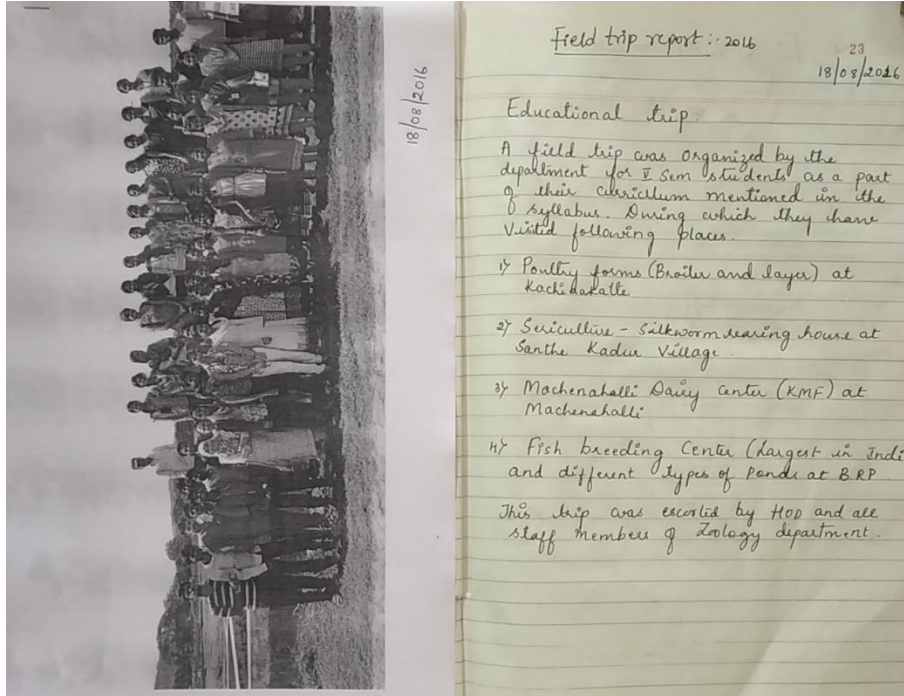 18/08/2016
Field trip report :- 2016
23
18/08/2016
Educational trip.
A field trip was organized by the
department for V Sem students as a part
of their curricullum mentioned in the
syllabus. During which they have
Visited following places.
1) Poultry forms (Broiler and layer) at
Kachinakatte
2) Sericulture - Silkworm rearing house at
Santhe Kadur Village.
3) Machenahalli Dairy Center (KMF) at
Machenahalli
4) Fish breeding Center (Largest in Indi
and different types of Ponds at BRP
This trip was escorted by HOD and all
staff members of Zoology department.